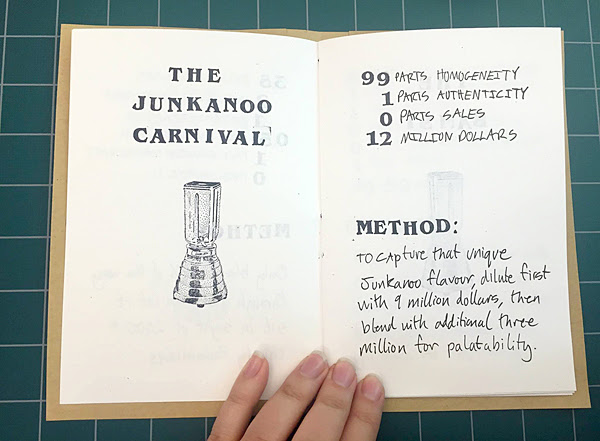 THE
JUNKANOO
CARNIVAL
99 PARTS HOMOGENEITY
1 PARTS AUTHENTICITY
0 PARTS SALES
12 MILLION DOLLARS
METHOD:
TO CAPTURE that unique
Junkanoo flavour, dilute first
with 9 million dollars, then
blend with additional three
million for palatability.